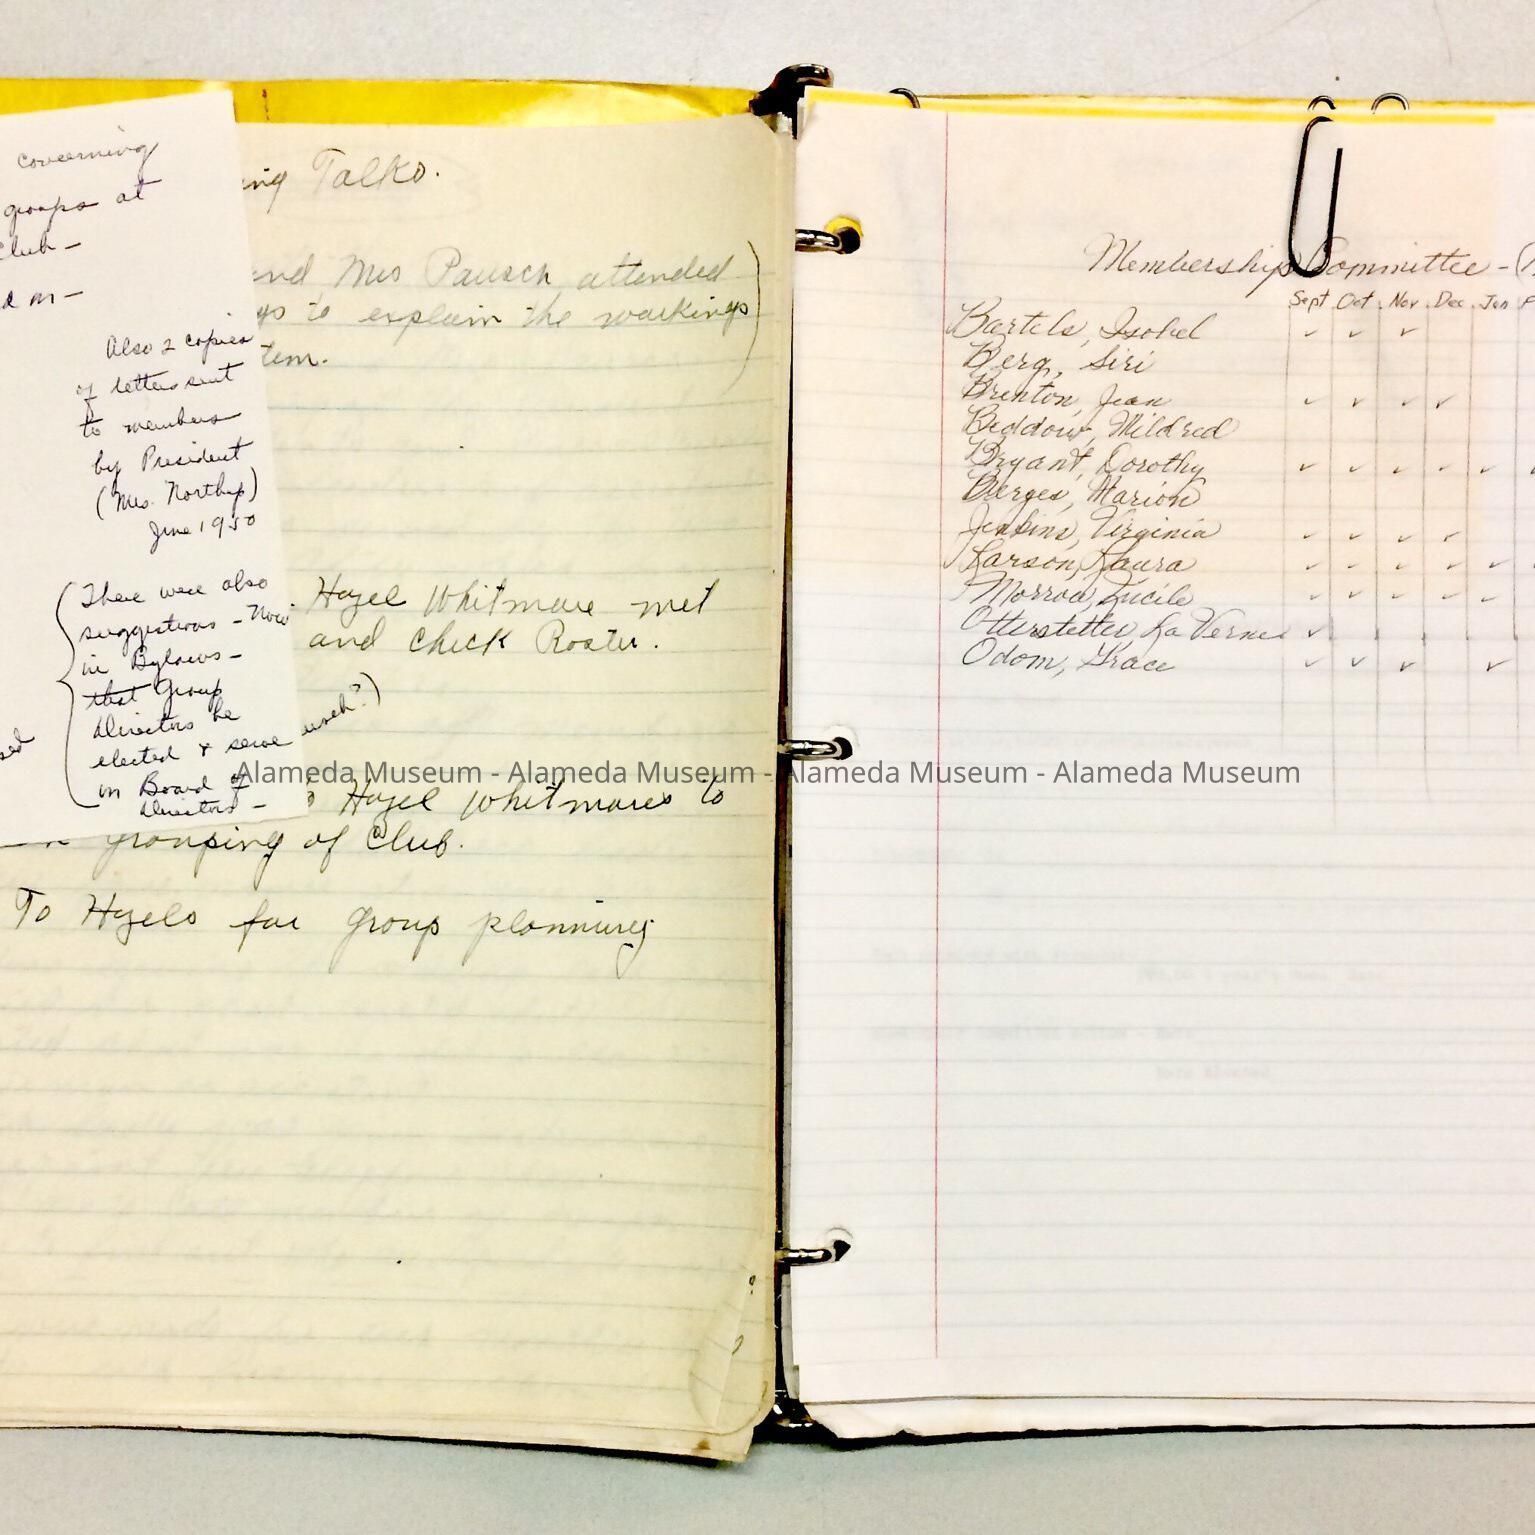 concerning
groups at
Club -
Also 2 copies
of letters sent
to members
by President
(Mrs. Northup)
June 1950
There were also
suggestions - Now
in Bylaws -
that Group
Directors be
elected & serve
on Board of
Directors -
ing Talks.
and Mrs Pausch attended
to explain the workings
tem.
Hazel Whitmore met
and check Roster.
Hazel Whitmores to
grouping of Club.
To Hazels for group planning
Membership Committee - (
Sept Oct Nov Dec Jan F
Bartels, Isobel ✓ ✓ ✓
Berg, Siri
Brenton, Jean ✓ ✓ ✓ ✓
Beddow, Mildred
Bryant, Dorothy ✓ ✓ ✓ ✓ ✓ ✓
Berges, Marion
Jenkins, Virginia ✓ ✓ ✓ ✓
Larson, Laura ✓ ✓ ✓ ✓ ✓ ✓
Morrow, Lucile ✓ ✓ ✓ ✓ ✓
Otterstetter, La Verne ✓
Odom, Grace ✓ ✓ ✓ ✓
Alameda Museum - Alameda Museum - Alameda Museum - Alameda Museum